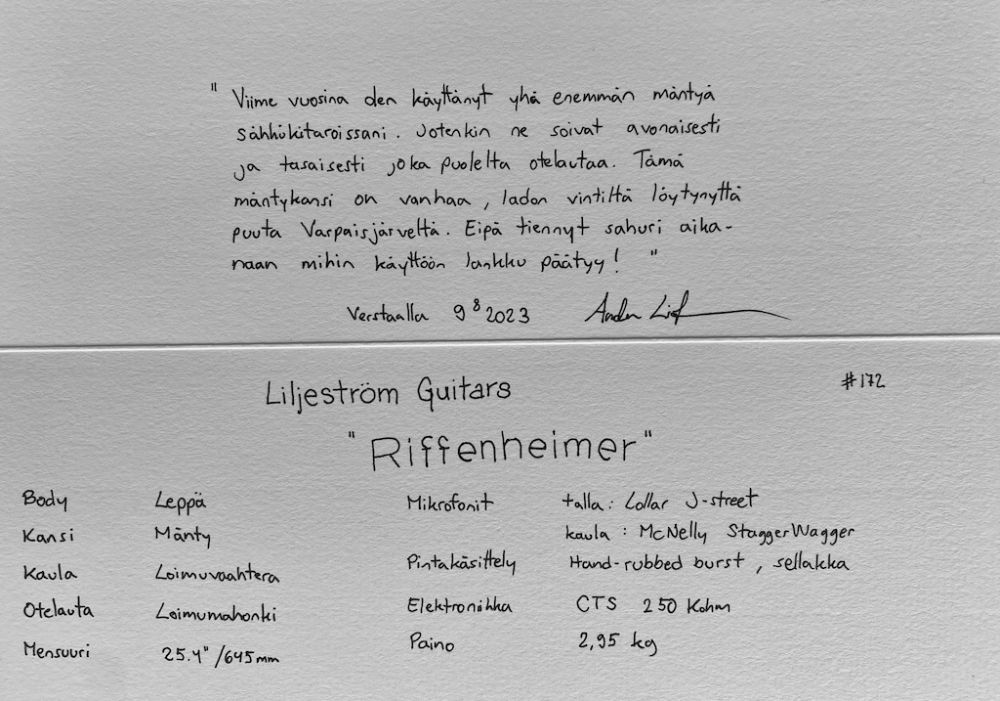 " Viime vuosina olen käyttänyt yhä enemmän mäntyä
sähkökitaroissani. Jotenkin ne soivat avonaisesti
ja tasaisesti joka puolelta otelautaa. Tämä
mäntykansi on vanhaa, ladon vintiltä löytynyttä
puuta Varpaisjärveltä. Eipä tiennyt sahuri aika-
naan mihin käyttöön lankku päätyy! "
Verstaalla 9 8 2023
Liljeström Guitars #172
"Riffenheimer"
Body Leppä Mikrofonit talla: Lollar J-street
Kansi Mänty kaula: McNelly StaggerWagger
Kaula Loimuvaahtera Pintakäsittely Hand-rubbed burst, sellakka
Otelauta Loimumahonki Elektroniikka CTS 250 Kohm
Mensuuri 25.4"/645mm Paino 2,95 kg